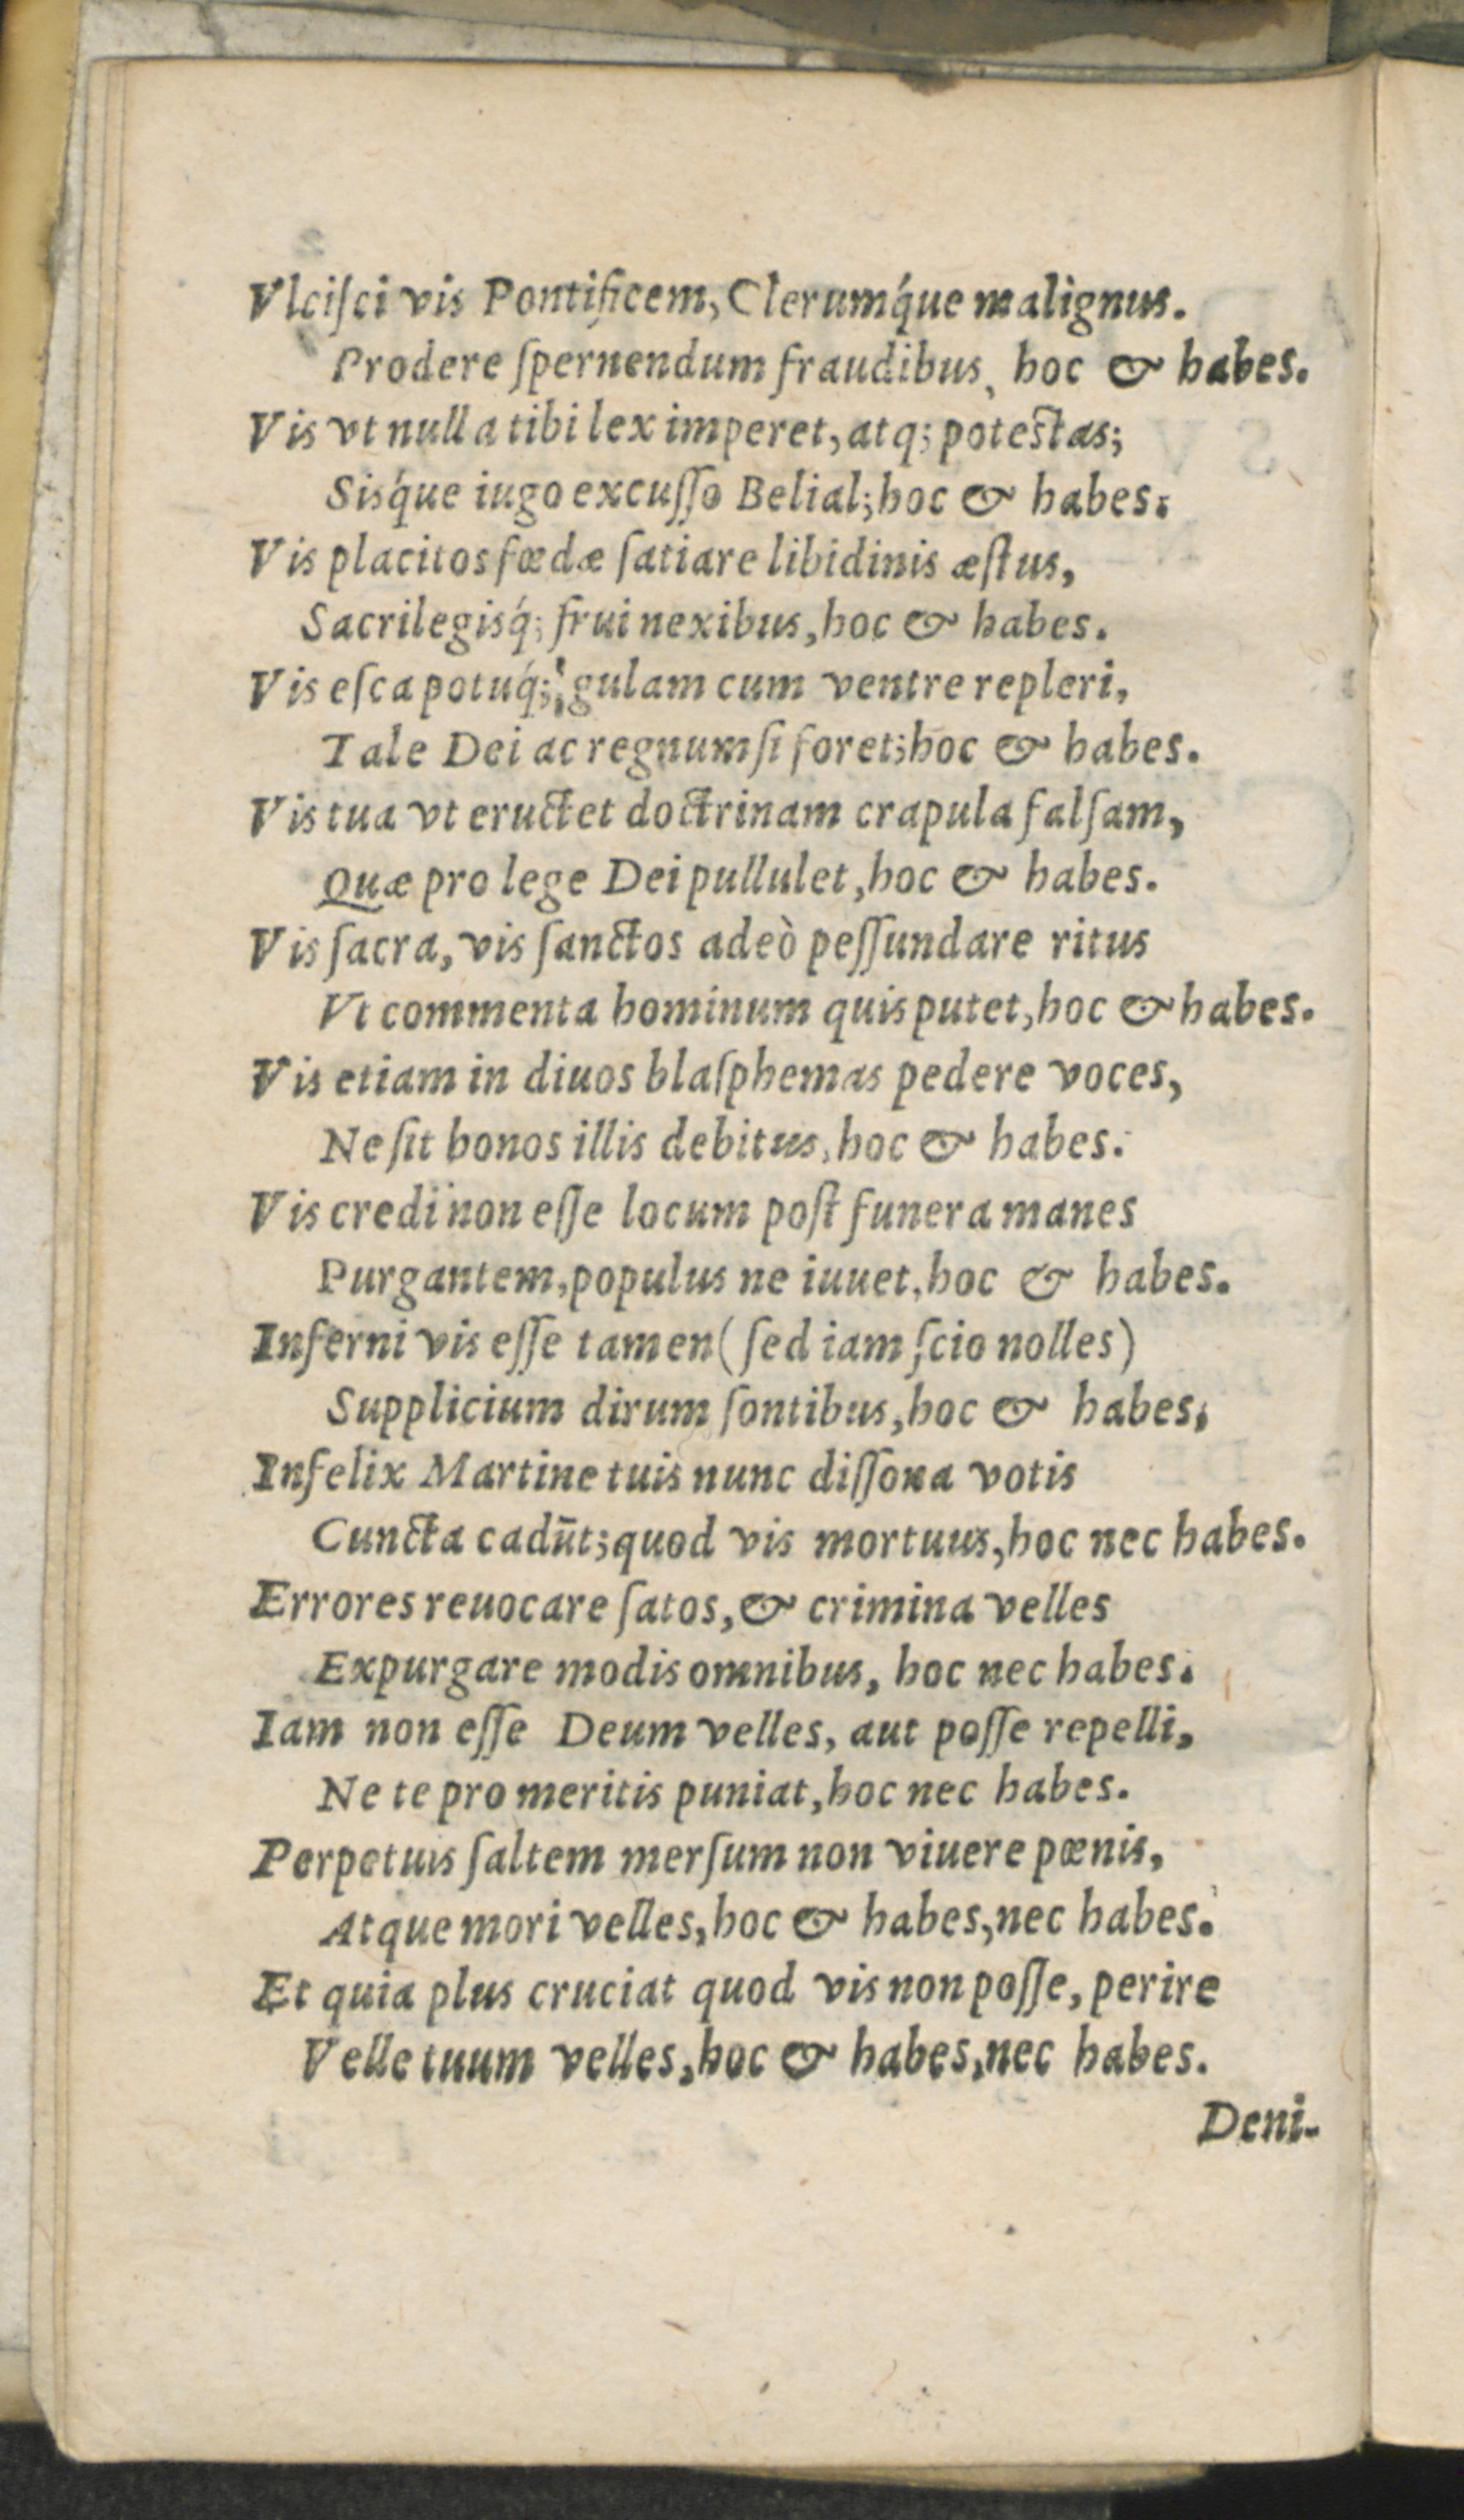 Vlciſci vis Pontificem, Clerumq́ue malignus.
Prodere ſpernendum fraudibus, hoc & habes.
Vis vt nulla tibi lex imperet, atq; potestas;
Sisq́ue iugo excuſſo Belial; hoc & habes.
Vis placitos fœdæ ſatiare libidinis æſtus,
Sacrilegisq́; frui nexibus, hoc & habes.
Vis eſca potuq́; gulam cum ventre repleri,
Tale Dei ac regnum ſi foret; hoc & habes.
Vis tua vt eructet doctrinam crapula falſam,
Quæ pro lege Dei pullulet, hoc & habes.
Vis ſacra, vis ſanctos adeò peſſundare ritus
Vt commenta hominum quis putet, hoc & habes.
Vis etiam in diuos blaſphemas pedere voces,
Ne ſit honos illis debitus, hoc & habes.
Vis credi non eſſe locum poſt funera manes
Purgantem, populus ne iuuet, hoc & habes.
Inferni vis eſſe tamen (ſed iam ſcio nolles)
Supplicium dirum ſontibus, hoc & habes,
Infelix Martine tuis nunc diſſona votis
Cuncta cadūt; quod vis mortuus, hoc nec habes.
Errores reuocare ſatos, & crimina velles
Expurgare modis omnibus, hoc nec habes.
Iam non eſſe Deum velles, aut poſſe repelli,
Ne te pro meritis puniat, hoc nec habes.
Perpetuis ſaltem merſum non viuere pœnis,
Atque mori velles, hoc & habes, nec habes.
Et quia plus cruciat quod vis non poſſe, perire
Velle tuum velles, hoc & habes, nec habes.
Deni-